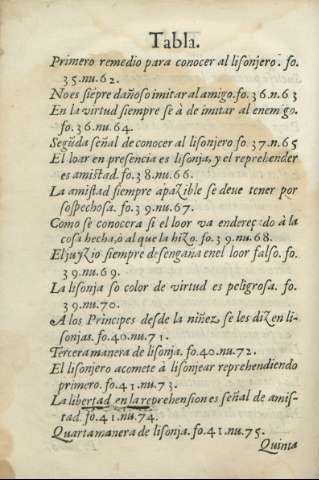 Tabla.
Primero remedio para conocer al lisonjero. fo.
35.nu.62.
No es siẽpre dañoso imitar al amigo.fo.36.n.63
En la virtud siempre se à de imitar al enemigo.
fo.36.nu.64.
Segũda señal de conocer al lisonjero fo.37.n.65
El loar en presencia es lisonja, y el reprehender
es amistad. fo.38.nu.66.
La amistad siempre apazible se deve tener por
sospechosa. fo.39.nu.67.
Como se conocera si el loor va endereçado à la
cosa hecha, ò al que la hizo. fo.39.nu.68.
El juyzio siempre desengaña en el loor falso. fo.
39.nu.69.
La lisonja so color de virtud es peligrosa. fo.
39.nu.70.
A los Principes desde la niñez se les dizẽ li-
sonjas. fo.40.nu.71.
Tercera manera de lisonja. fo.40.nu.72.
El lisonjero acomete à lisonjear reprehendiendo
primero. fo.41.nu.73.
La libertad en la reprehension es señal de amis-
tad. fo.41.nu.74.
Quarta manera de lisonja. fo.41.nu.75.
Quinta